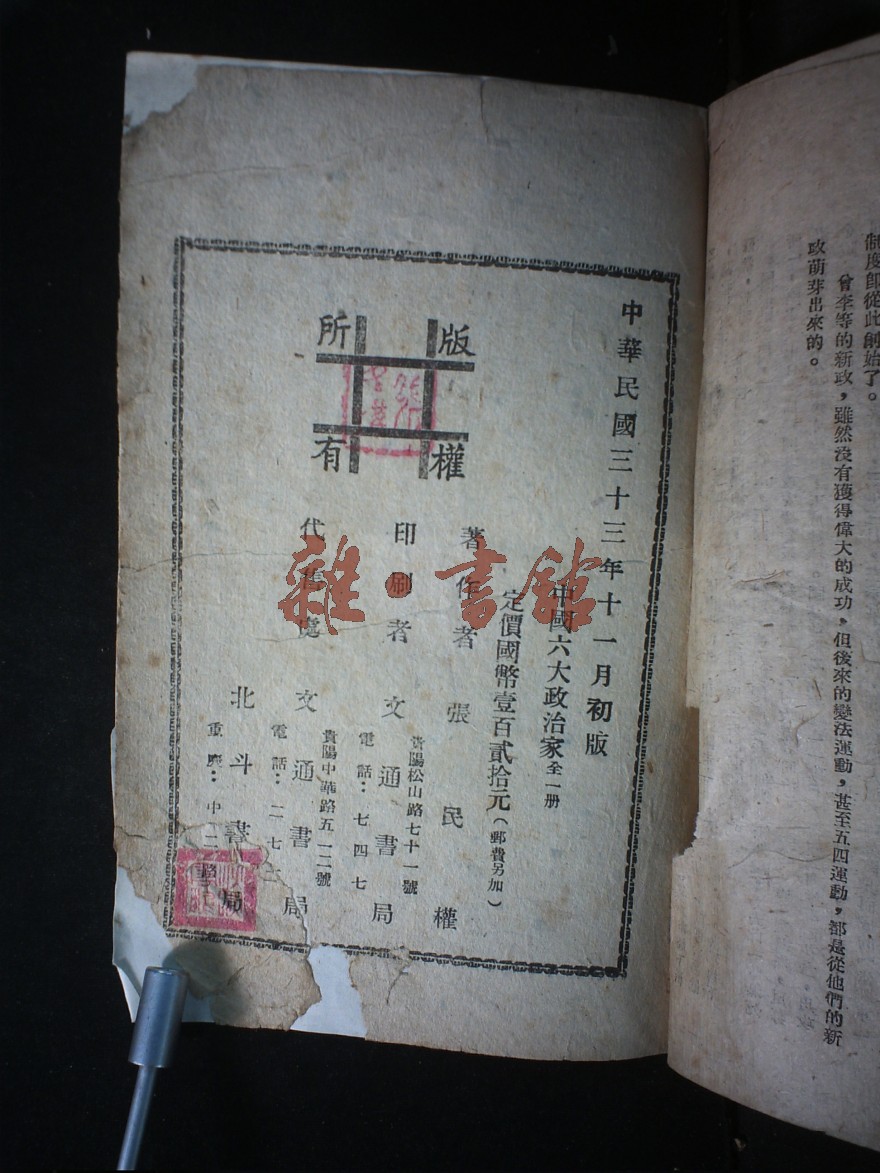 制度即從此創始了。
曾李等的新政，雖然沒有獲得偉大的成功，但後來的變法運動，甚至五四運動，都是從他們的新
政萌芽出來的。
中華民國三十三年十一月初版
中國六大政治家全一册
定價國幣壹百貳拾元（郵費另加）
版權
所有
著作者 張民權
印刷者 文通書局
貴陽松山路七十一號
電話：七四七
代售處 文通書局
貴陽中華路五一二號
電話：二七
北斗書局
重慶：中
雜·書館